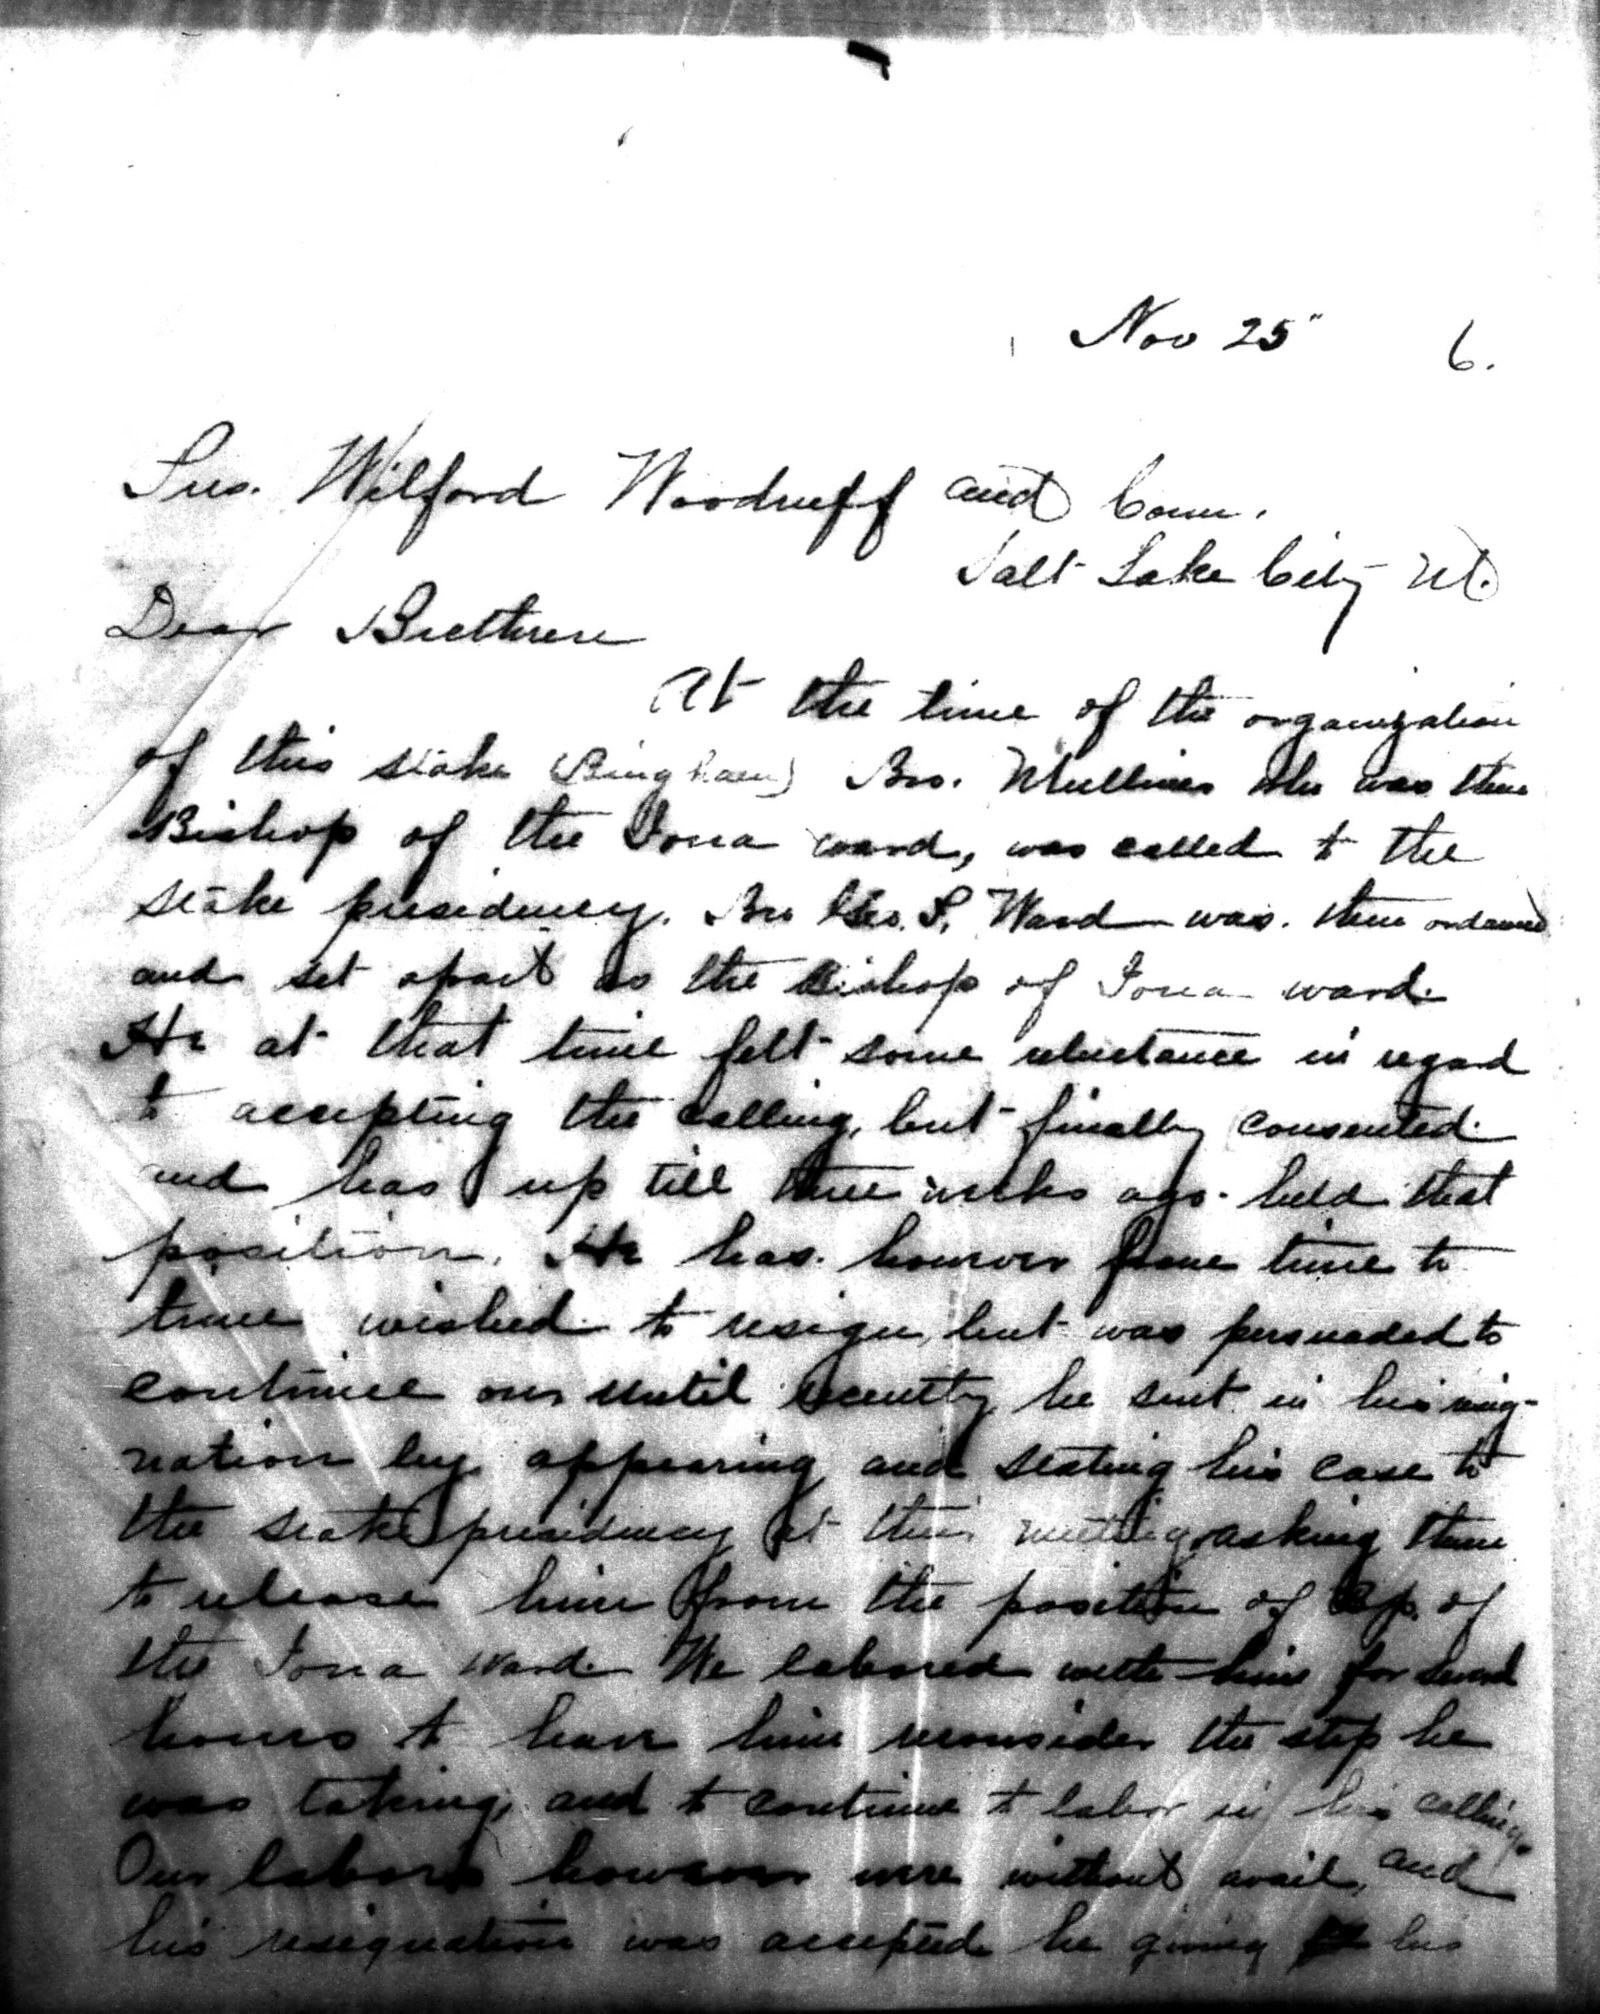 Nov 25" 6.
Pres. Wilford Woodruff and Coun.
Salt Lake City Ut.
Dear Brethren
At the time of the organization
of this stake (Bingham) Bro. Mullines who was then
Bishop of the Iona ward, was called to the
stake presidency. Bro Geo. S. Ward was then ordained
and set apart as the Bishop of Iona ward.
He at that time felt some reluctance in regard
to accepting the calling, but finally consented
and has up till three weeks ago held that
position. He has however from time to
time wished to resign, but was persuaded to
continue on until recently he sent in his resig-
nation by appearing and stating his case to
the stake presidency at their meeting, asking them
to release him from the position of Bp. of
the Iona ward. We labored with him for several
hours to have him reconsider the step he
was taking, and to continue to labor in his calling.
Our labors however were without avail, and
his resignation was accepted he giving his